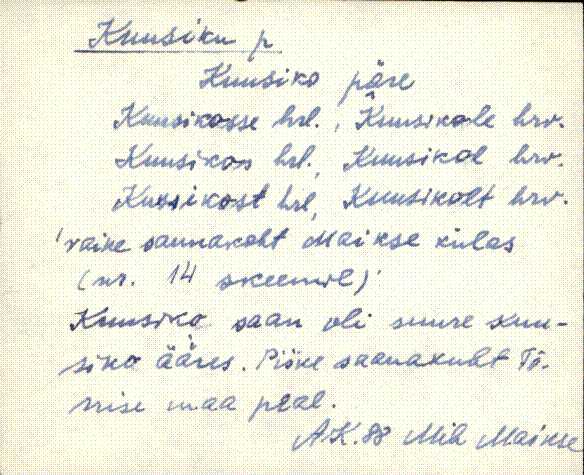 Kuusiku p
Kuusiko päre
Kuusikosse hrl., Kuusikole hrv.
Kuusikos hrl., Kuusikol hrv.
Kuusikost hrl, Kuusikolt hrv.
'väike saunakoht Maikse külas
(nr. 14 skeemil)'
Kuusiko saun oli suure kuu-
siko ääres. Piske saunakuht Tõ-
nise maa peal.
AK.88 Mih Maikse